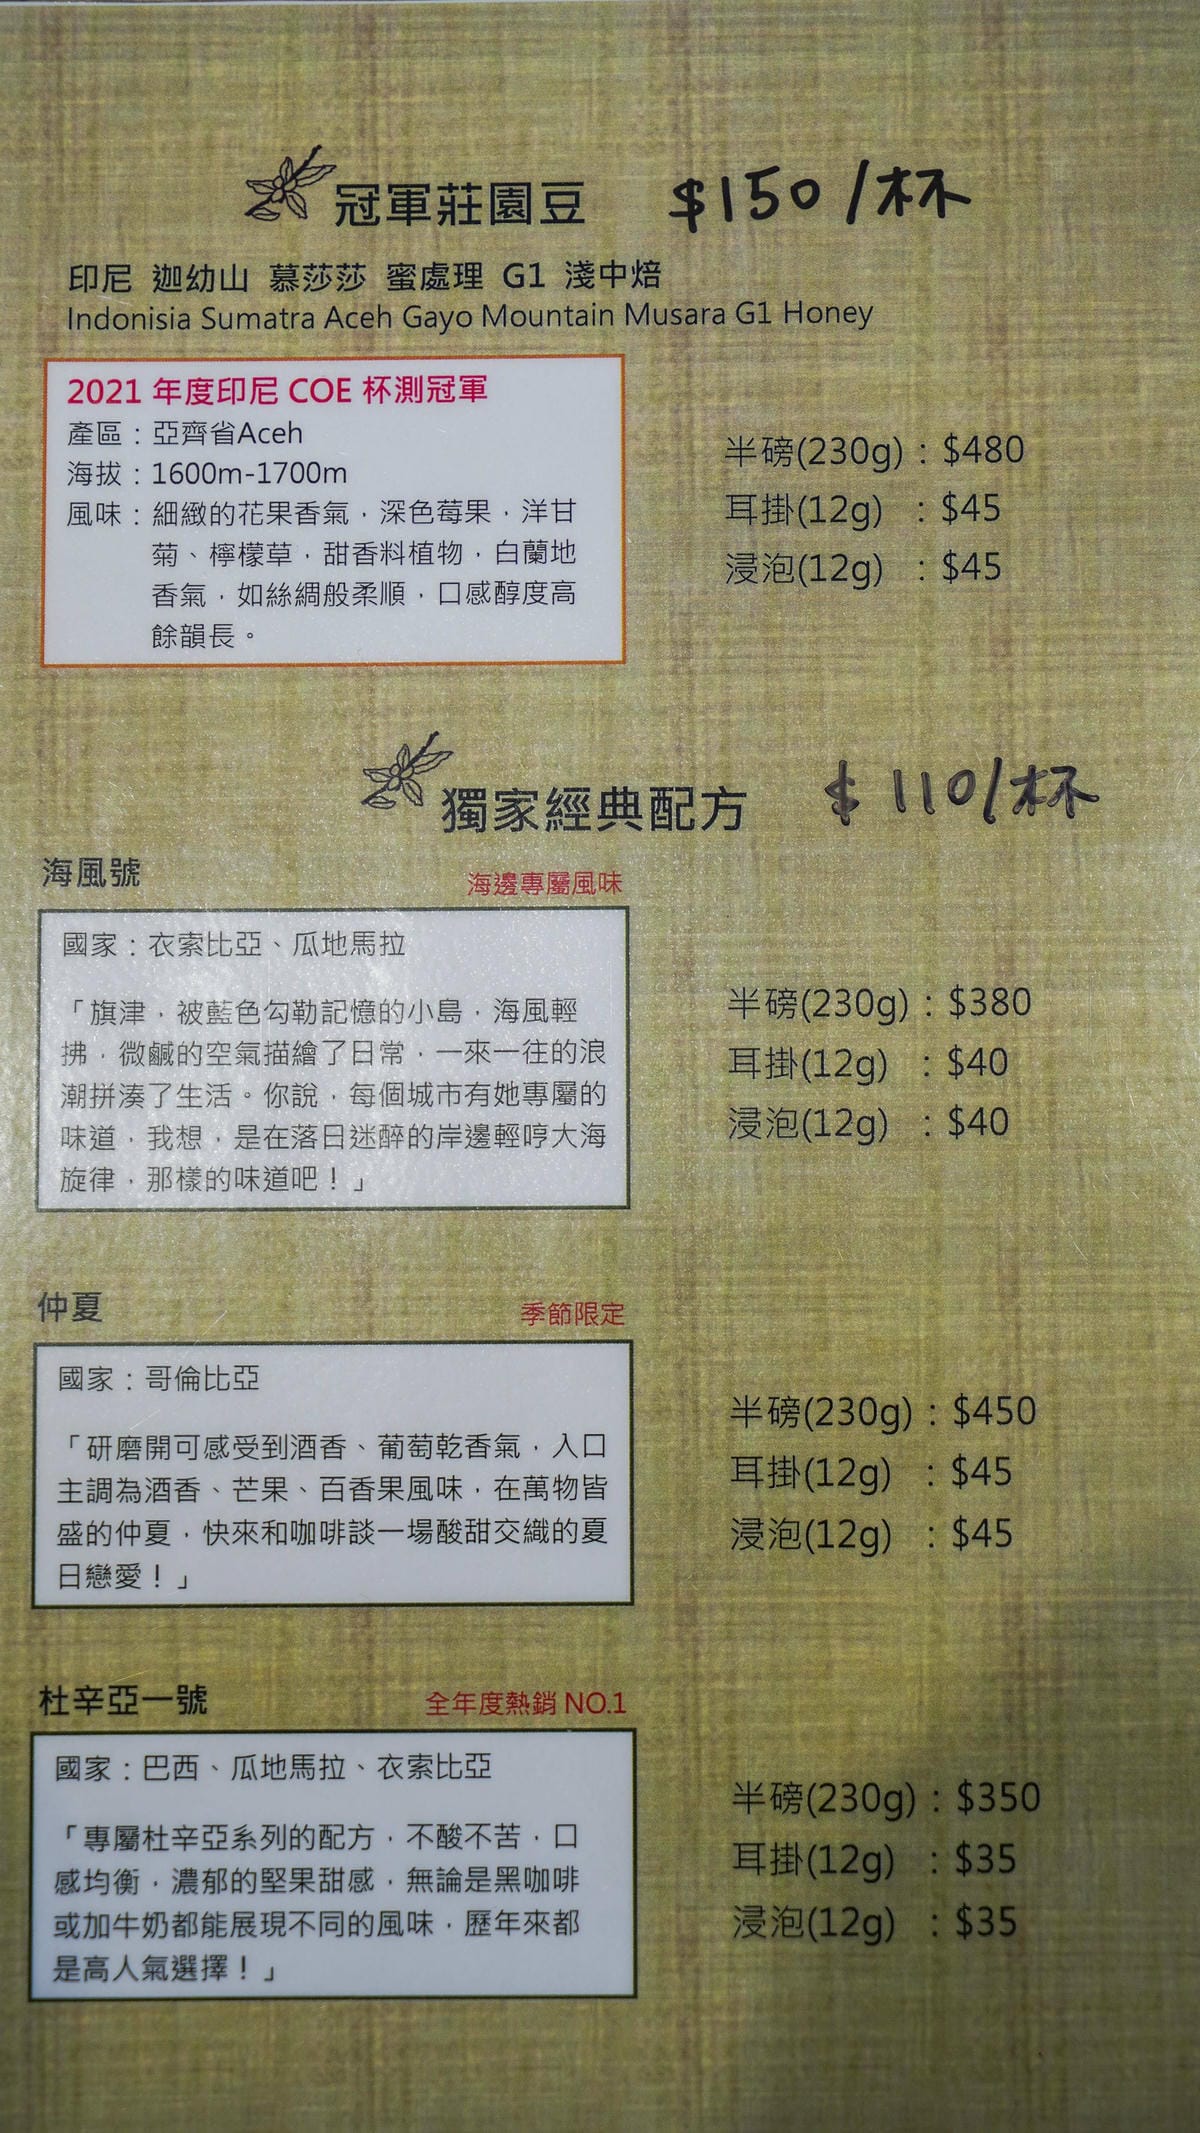 冠軍莊園豆 $150/杯
印尼 迦幼山 慕莎莎 蜜處理 G1 淺中焙
Indonisia Sumatra Aceh Gayo Mountain Musara G1 Honey
2021 年度印尼 COE 杯測冠軍
產區：亞齊省Aceh
海拔：1600m-1700m
風味：細緻的花果香氣，深色莓果，洋甘
菊、檸檬草，甜香料植物，白蘭地
香氣，如絲綢般柔順，口感醇度高
餘韻長。
半磅(230g)：$480
耳掛(12g) ：$45
浸泡(12g) ：$45
獨家經典配方 $110/杯
海風號 海邊專屬風味
國家：衣索比亞、瓜地馬拉
「旗津，被藍色勾勒記憶的小島，海風輕
拂，微鹹的空氣描繪了日常，一來一往的浪
潮拼湊了生活。你說，每個城市有她專屬的
味道，我想，是在落日迷醉的岸邊輕哼大海
旋律，那樣的味道吧！」
半磅(230g)：$380
耳掛(12g) ：$40
浸泡(12g) ：$40
仲夏 季節限定
國家：哥倫比亞
「研磨開可感受到酒香、葡萄乾香氣，入口
主調為酒香、芒果、百香果風味，在萬物皆
盛的仲夏，快來和咖啡談一場酸甜交織的夏
日戀愛！」
半磅(230g)：$450
耳掛(12g) ：$45
浸泡(12g) ：$45
杜辛亞一號 全年度熱銷 NO.1
國家：巴西、瓜地馬拉、衣索比亞
「專屬杜辛亞系列的配方，不酸不苦，口
感均衡，濃郁的堅果甜感，無論是黑咖啡
或加牛奶都能展現不同的風味，歷年來都
是高人氣選擇！」
半磅(230g)：$350
耳掛(12g) ：$35
浸泡(12g) ：$35